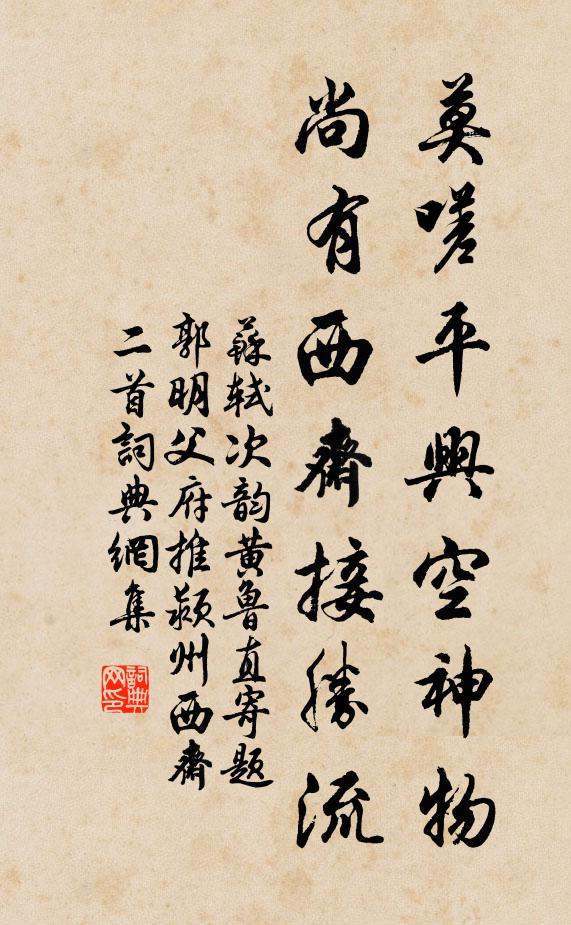 莫嗟平輿空神物
尚有西齋接勝流
蘇軾次韵黄魯直寄題
郭明父府推潁州西齋
二首詞典網集
詞典网印